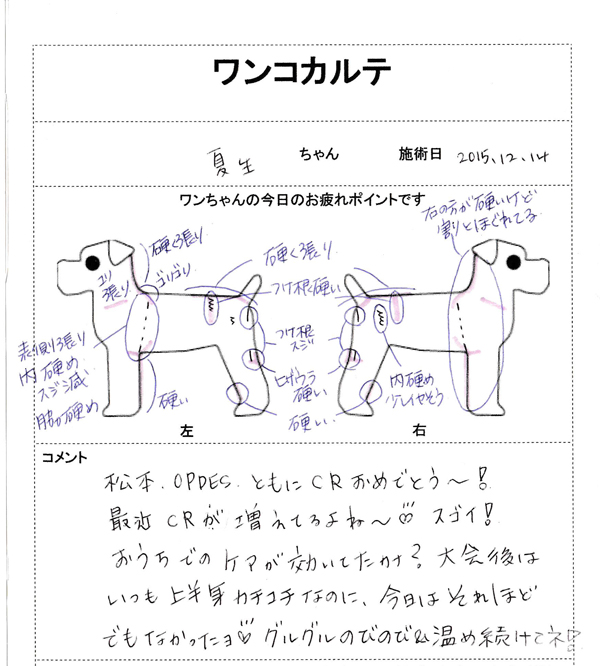 ワンコカルテ
夏生 ちゃん 施術日 2015.12.14
ワンちゃんの今日のお疲れポイントです
右の方が硬いけど
割とほぐれてる
硬く張り
ゴリゴリ
コリ
張り
硬く張り
つけ根硬い
つけ根
スジ
ヒザウラ
硬い
硬い
表側張り
内硬め
スジ減
脇硬め
硬い
内硬め
少しイヤそう
左
右
コメント
松本.OPDES.ともにCRおめでとう〜!
最近CRが増えてるよね〜♡スゴイ!
おうちでのケアが効いてたかな?大会後は
いつも上半身カチコチなのに、今日はそれほど
でもなかったヨ♡グルグルのびのび&温め続けてネ!